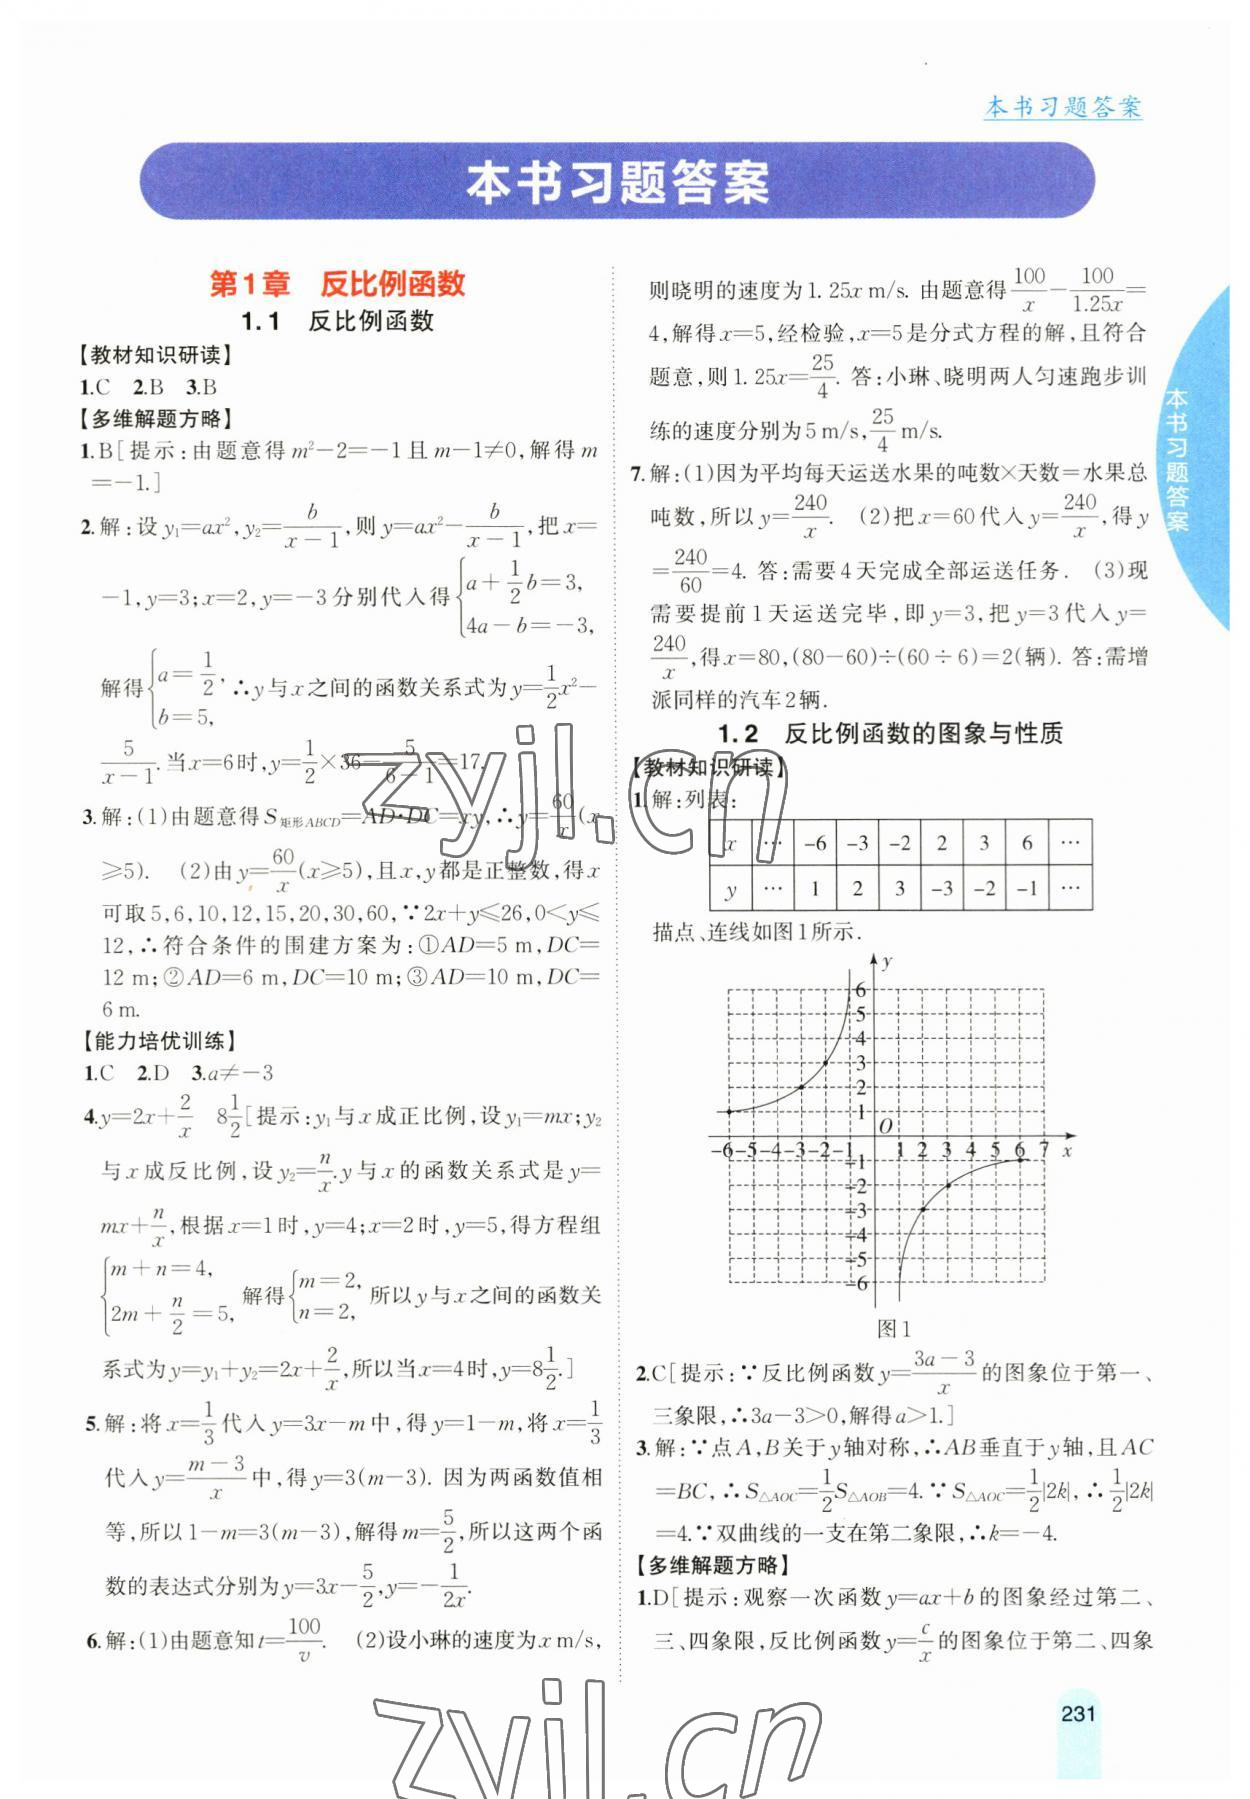 本书习题答案
本书习题答案
第1章 反比例函数
1.1 反比例函数
【教材知识研读】
1.C 2.B 3.B
【多维解题方略】
1.B[提示:由题意得m²−2=−1且m−1≠0,解得m
=−1.]
2.解:设y₁=ax²,y₂=b/(x−1),则y=ax²−b/(x−1),把x=
−1,y=3;x=2,y=−3分别代入得{a+1/2b=3,
4a−b=−3,
解得{a=1/2,
b=5,
∴y与x之间的函数关系式为y=1/2x²−
5/(x−1).当x=6时,y=1/2×36−5/(6−1)=17.
3.解:(1)由题意得S矩形ABCD=AD·DC=xy,∴y=60/x(x
≥5). (2)由y=60/x(x≥5),且x,y都是正整数,得x
可取5,6,10,12,15,20,30,60,∵2x+y≤26,0<y≤
12,∴符合条件的围建方案为:①AD=5 m,DC=
12 m;②AD=6 m,DC=10 m;③AD=10 m,DC=
6 m.
【能力培优训练】
1.C 2.D 3.a≠−3
4.y=2x+2/x 8 1/2[提示:y₁与x成正比例,设y₁=mx;y₂
与x成反比例,设y₂=n/x.y与x的函数关系式是y=
mx+n/x,根据x=1时,y=4;x=2时,y=5,得方程组
{m+n=4,
2m+n/2=5,
解得{m=2,
n=2,
所以y与x之间的函数关
系式为y=y₁+y₂=2x+2/x,所以当x=4时,y=8 1/2.]
5.解:将x=1/3代入y=3x−m中,得y=1−m,将x=1/3
代入y=(m−3)/x中,得y=3(m−3). 因为两函数值相
等,所以1−m=3(m−3),解得m=5/2,所以这两个函
数的表达式分别为y=3x−5/2,y=−1/2x.
6.解:(1)由题意知t=100/v. (2)设小琳的速度为x m/s,
则晓明的速度为1.25x m/s. 由题意得100/x−100/1.25x=
4,解得x=5,经检验,x=5是分式方程的解,且符合
题意,则1.25x=25/4. 答:小琳、晓明两人匀速跑步训
练的速度分别为5 m/s,25/4 m/s.
7.解:(1)因为平均每天运送水果的吨数×天数=水果总
吨数,所以y=240/x. (2)把x=60代入y=240/x,得y
=240/60=4. 答:需要4天完成全部运送任务. (3)现
需要提前1天运送完毕,即y=3,把y=3代入y=
240/x,得x=80,(80−60)÷(60÷6)=2(辆). 答:需增
派同样的汽车2辆.
1.2 反比例函数的图象与性质
【教材知识研读】
1.解:列表:
x ⋯ −6 −3 −2 2 3 6 ⋯
y ⋯ 1 2 3 −3 −2 −1 ⋯
描点、连线如图1所示.
y
6
5
4
3
2
1
O
−6 −5 −4 −3 −2 −1 1 2 3 4 5 6 7 x
−1
−2
−3
−4
−5
−6
图1
2.C[提示:∵反比例函数y=(3a−3)/x的图象位于第一、
三象限,∴3a−3>0,解得a>1.]
3.解:∵点A,B关于y轴对称,∴AB垂直于y轴,且AC
=BC,∴S△AOC=1/2S△AOB=4.∵S△AOC=1/2|2k|,∴1/2|2k|
=4.∵双曲线的一支在第二象限,∴k=−4.
【多维解题方略】
1.D[提示:观察一次函数y=ax+b的图象经过第二、
三、四象限,反比例函数y=c/x的图象位于第二、四象
本书习题答案
231
zyjl.cn
zyjl.cn